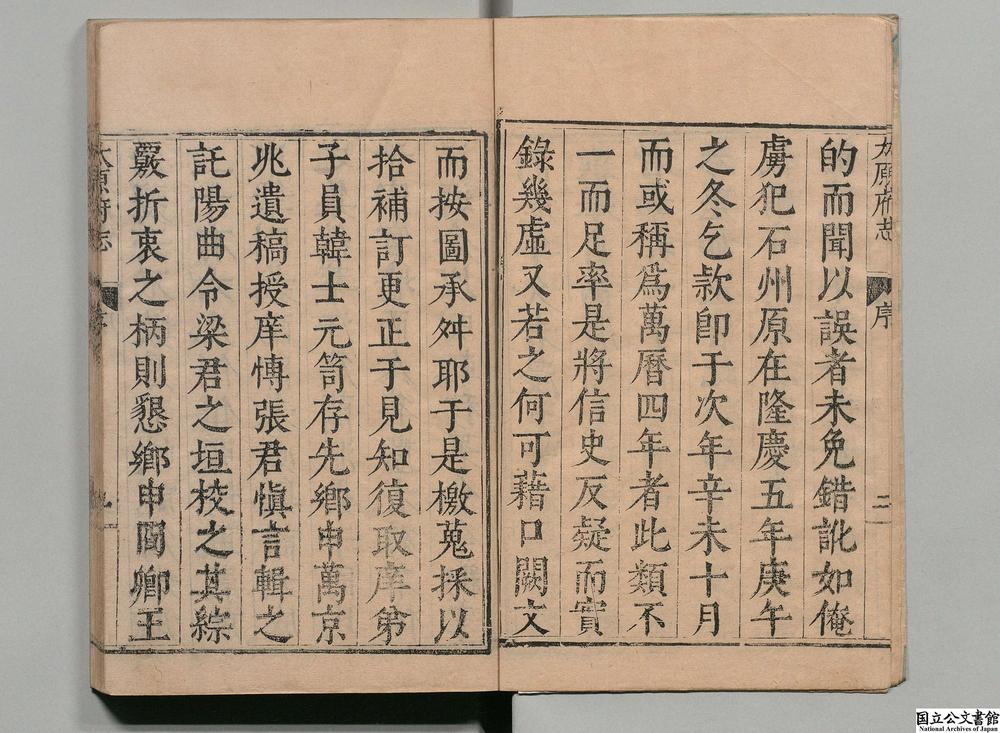 太原府志
序
二
的而聞以誤者未免錯訛如俺
虜犯石州原在隆慶五年庚午
之冬乞款卽于次年辛未十月
而或稱爲萬曆四年者此類不
一而足率是將信史反疑而實
錄幾虛又若之何可藉口闕文
而按圖承舛耶于是檄蒐採以
拾補訂更正于見知復取庠弟
子員韓士元笥存先鄉申萬京
兆遺稿授庠愽張君愼言輯之
託陽曲令梁君之垣校之其綜
覈折衷之柄則懇鄉申閻卿王
太原府志
序
国立公文書館
National Archives of Japan